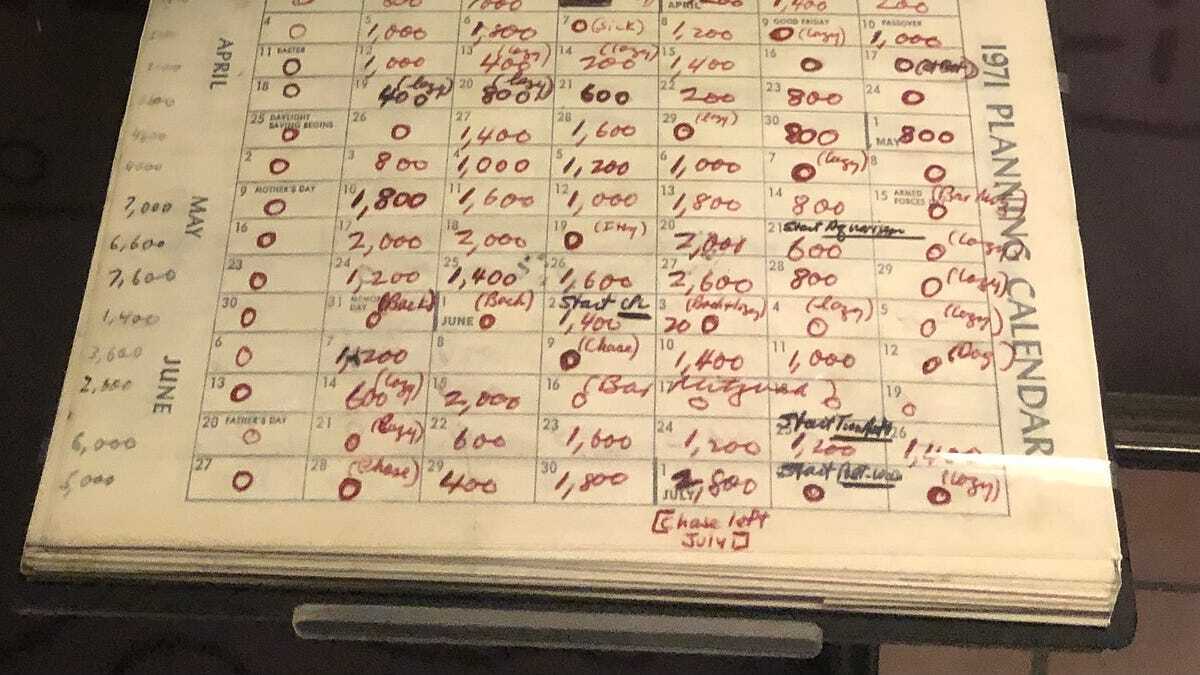 APRIL 1,400 200
4 0 5 1,000 6 1,800 7 0 (Sick) 8 1,200 9 GOOD FRIDAY 0 (lazy) 10 PASSOVER 1,000
11 EASTER 0 12 1,000 13 (lazy) 400 14 (lazy) 200 15 1,400 16 0 17 0
18 0 19 (lazy) 400 20 (lazy) 800 21 600 22 200 23 800 24 0
25 DAYLIGHT SAVING BEGINS 0 26 0 27 1,400 28 1,600 29 (lazy) 0 30 800 1 MAY 800
2 0 3 800 4 1,000 5 1,200 6 1,000 7 (lazy) 0 8 0
7,000 9 MOTHER'S DAY 0 10 1,800 11 1,600 12 1,000 13 1,800 14 800 15 ARMED FORCES 0
6,600 16 0 17 2,000 18 2,000 19 0 20 2,000 21 Start Aquarium 600 0 (lazy)
7,600 23 0 24 1,200 25 1,400 26 1,600 27 2,600 28 800 29 0 (lazy)
1,400 30 0 31 (Back) 0 1 JUNE (Back) 0 2 Start 1,400 3 (Back+lazy) 20 0 4 (lazy) 0 5 0 (lazy)
3,600 6 0 7 1,200 8 9 (Chase) 0 10 1,400 11 1,000 12 0 (Dog)
13 0 14 (lazy) 600 15 2,000 16 (Bar Mitzvah) 0 17 0 0 19 0
6,000 20 FATHER'S DAY 0 21 (lazy) 0 22 600 23 1,600 24 1,200 25 Start 1,200 26 1,400
5,000 27 0 28 (Chase) 0 29 400 30 1,800 1 JULY 2,800 Start 0 (lazy) 0
[Chase left
July]
APRIL
MAY
JUNE
1971 PLANNING CALENDAR